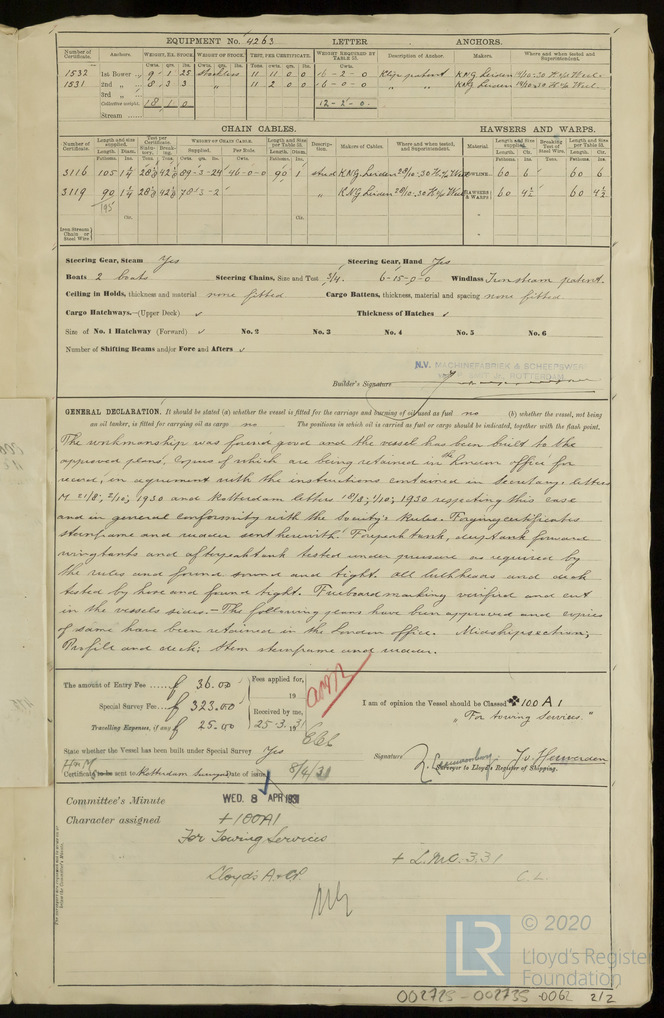 EQUIPMENT No. 4263 LETTER ANCHORS.
Number of Certificate. Anchors. WEIGHT, EX. STOCK. WEIGHT OF STOCK. TEST, PER CERTIFICATE. WEIGHT REQUIRED BY TABLE 22. Description of Anchor. Makers. Where and when tested and Superintendent.
1532 1st Bower 9 1 25 stockless 11 11 0 0 16-2-0 K.N.G. Leiden
1531 2nd „ 8 3 3 „ 11 2 0 0 16-0-0 „ „ K.N.G. Leiden
3rd „
Collective weight. 18 1 0 12-2-0
Stream
CHAIN CABLES. HAWSERS AND WARPS.
Number of Certificate. Length and size supplied. Test per Certificate. WEIGHT OF CHAIN CABLE. Length and Size per Table 22. Description. Makers of Cables. Where and when tested, and Superintendent. Material. Length and size supplied. Breaking Test of Steel Wire. Length and Size per Table 22.
3116 105 1¼ 89-3-24 46-0-0 90 1 stud K.N.G. Leiden 28/10-30 60 6 60 6
3119 90 1¼ 78-3-2 „ K.N.G. Leiden 28/10-30 HAWSERS & WARPS 60 4½ 60 4½
195
Iron Stream Chain or Steel Wire
Steering Gear, Steam Yes Steering Gear, Hand Yes
Boats 2 boats Steering Chains, Size and Test 3/4. 6-15-0-0 Windlass patent.
Ceiling in Holds, thickness and material none fitted Cargo Battens, thickness, material and spacing none fitted
Cargo Hatchways.—(Upper Deck) ✓ Thickness of Hatches ✓
Size of No. 1 Hatchway (Forward) ✓ No. 2 No. 3 No. 4 No. 5 No. 6
Number of Shifting Beams and/or Fore and Afters ✓
N.V. MACHINEFABRIEK & SCHEEPSWERF
ROTTERDAM
Builder's Signature
GENERAL DECLARATION. It should be stated (a) whether the vessel is fitted for the carriage and burning of oil used as fuel no (b) whether the vessel, not being
an oil tanker, is fitted for carrying oil as cargo no The positions in which oil is carried as fuel or cargo should be indicated, together with the flash point.
The workmanship was found good and the vessel has been built to the
approved plans, copies of which are being retained in the London office for
record, in agreement with the instructions contained in Secretary's letters
M 21/8, 2/10, 1930 and Rotterdam letters 18/8, 1/10, 1930 respecting this case
and in general conformity with the Society's Rules. Forging certificates
sternframe and rudder sent herewith. Forepeaktank, deeptank forward
wingtanks and afterpeaktank tested under pressure as required by
the rules and found sound and tight. All bulkheads and deck
tested by hose and found tight. Freeboard marking verified and cut
in the vessels sides.— The following plans have been approved and copies
of same have been retained in the London office. Midshipsection,
Profile and deck, Stem sternframe and rudder.
The amount of Entry Fee ƒ 36.00 Fees applied for, 19
Special Survey Fee ƒ 323.00 Received by me,
Travelling Expenses, if any ƒ 25.00 25-3-31
I am of opinion the Vessel should be Classed ✠100 A 1
„ For towing Services. "
State whether the Vessel has been built under Special Survey Yes
Signature
Surveyor to Lloyd's Register of Shipping.
Certificate to be sent to Rotterdam Surveyors Date of issue 8/4/31
Committee's Minute WED. 8 APR 1931
Character assigned +100A1
For Towing Services
Lloyd's A&CP.
+ L.M.C. 3.31
C.L.
LR © 2020
Lloyd's Register
Foundation
002725 - 002735 - 0062 2/2